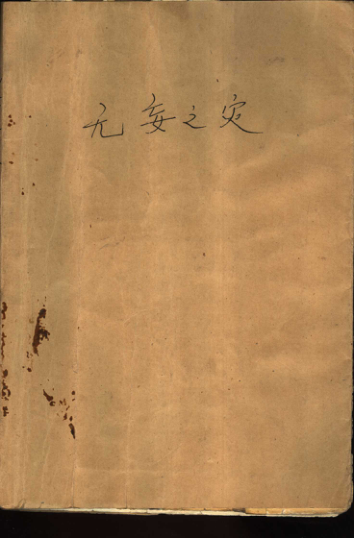 无妄之灾